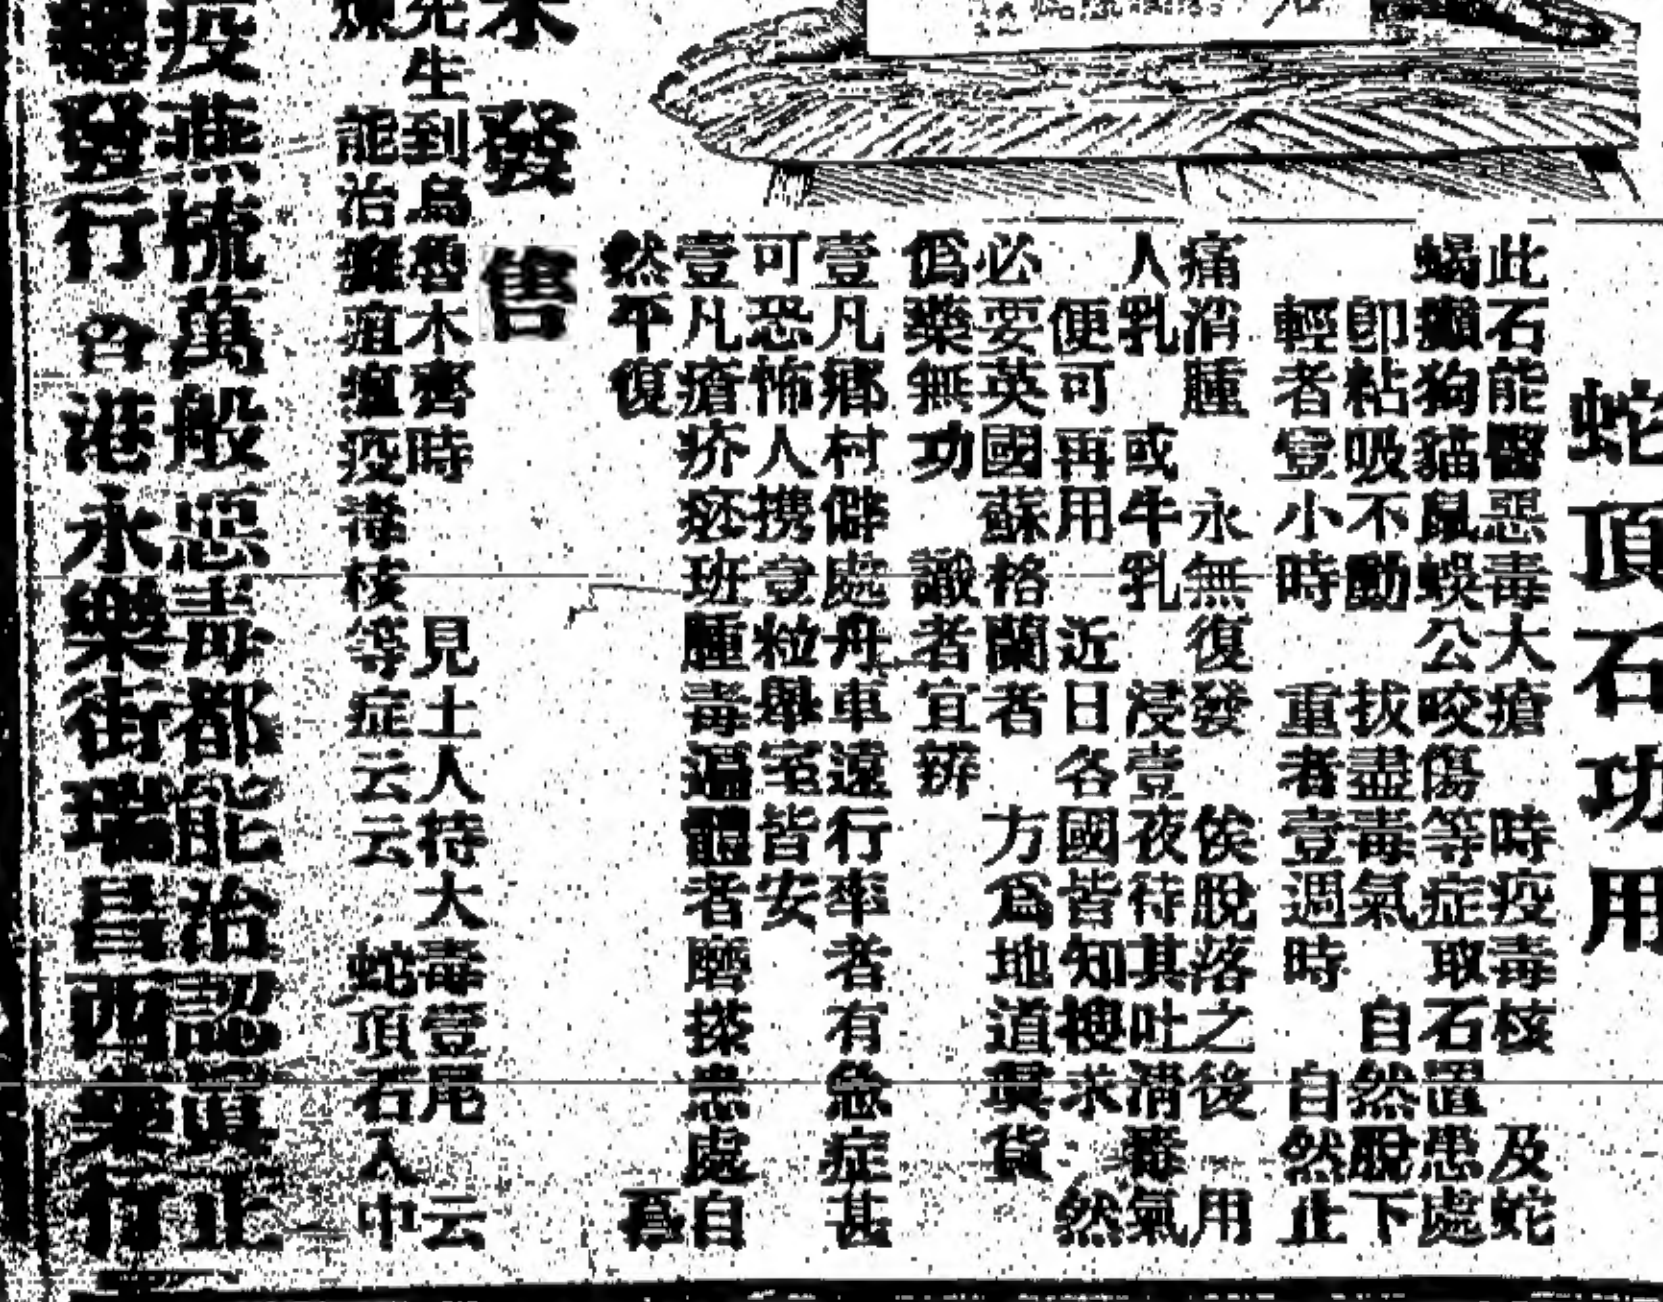 蛇頂石功用
此石能醫惡毒大瘡 時疫毒核 及蛇
蝎癲狗貓鼠蜈公咬傷等症取石置患處
卽粘吸不動 拔盡毒氣 自然脫下
輕者壹小時 重者壹週時 自然止
痛消腫 永無復發 俟脫落之後用
人乳或牛乳 浸壹夜待其吐清毒氣
便可再用 近日各國皆知搜求 然
必要英國蘇格蘭者 方爲地道眞貨
僞藥無功 識者宜辨
壹凡鄉村僻處舟車遠行率者有急症甚
可恐怖人携壹粒舉室皆安
壹凡瘡疥 班腫毒遍體者磨搽患處自
然平復
木發售
先生到烏魯木齊時 見土人持大毒壹尾 云
能治 疽瘟疫毒核等症云云 蛇頂石入中
疫燕梳萬般惡毒都能治認眞止
總發行 香港永樂街瑞昌西藥行